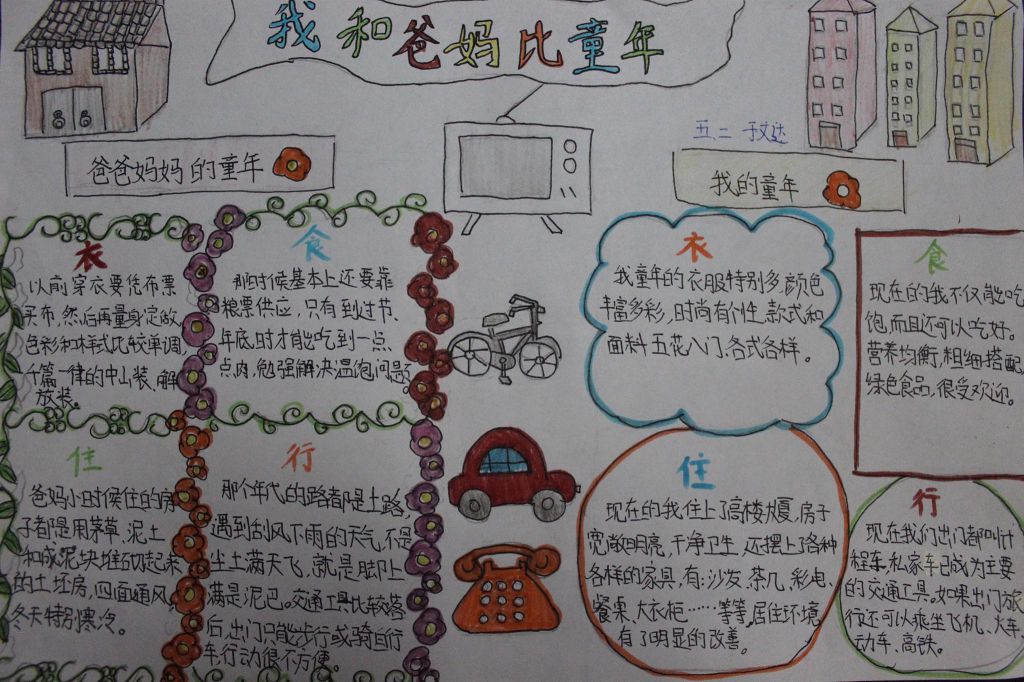 我和爸妈比童年
五二 于文达
爸爸妈妈的童年
衣
以前穿衣要凭布票
买布,然后再量身定做,
色彩和样式比较单调,
千篇一律的中山装、解
放装。
食
那时候基本上还要靠
粮票供应,只有到过节、
年底时才能吃到一点
点肉,勉强解决温饱问题。
住
爸妈小时候住的房
子都是用茅草、泥土
和成泥块堆砌起来
的土坯房,四面通风,
冬天特别寒冷。
行
那个年代的路都是土路,
遇到刮风下雨的天气,不是
尘土满天飞,就是脚上
满是泥巴。交通工具比较落
后,出门只能步行或骑自行
车,行动很不方便。
我的童年
衣
我童年的衣服特别多,颜色
丰富多彩,时尚有个性,款式和
面料五花八门、各式各样。
食
现在的我不仅能吃
饱,而且还可以吃好。
营养均衡,粗细搭配,
绿色食品,很受欢迎。
住
现在的我住上了高楼大厦,房子
宽敞明亮,干净卫生,还摆上了各种
各样的家具,有:沙发、茶几、彩电、
餐桌、大衣柜……等等,居住环境
有了明显的改善。
行
现在我们出门都叫计
程车,私家车已成为主要
的交通工具。如果出门旅
行还可以乘坐飞机、火车、
动车、高铁。